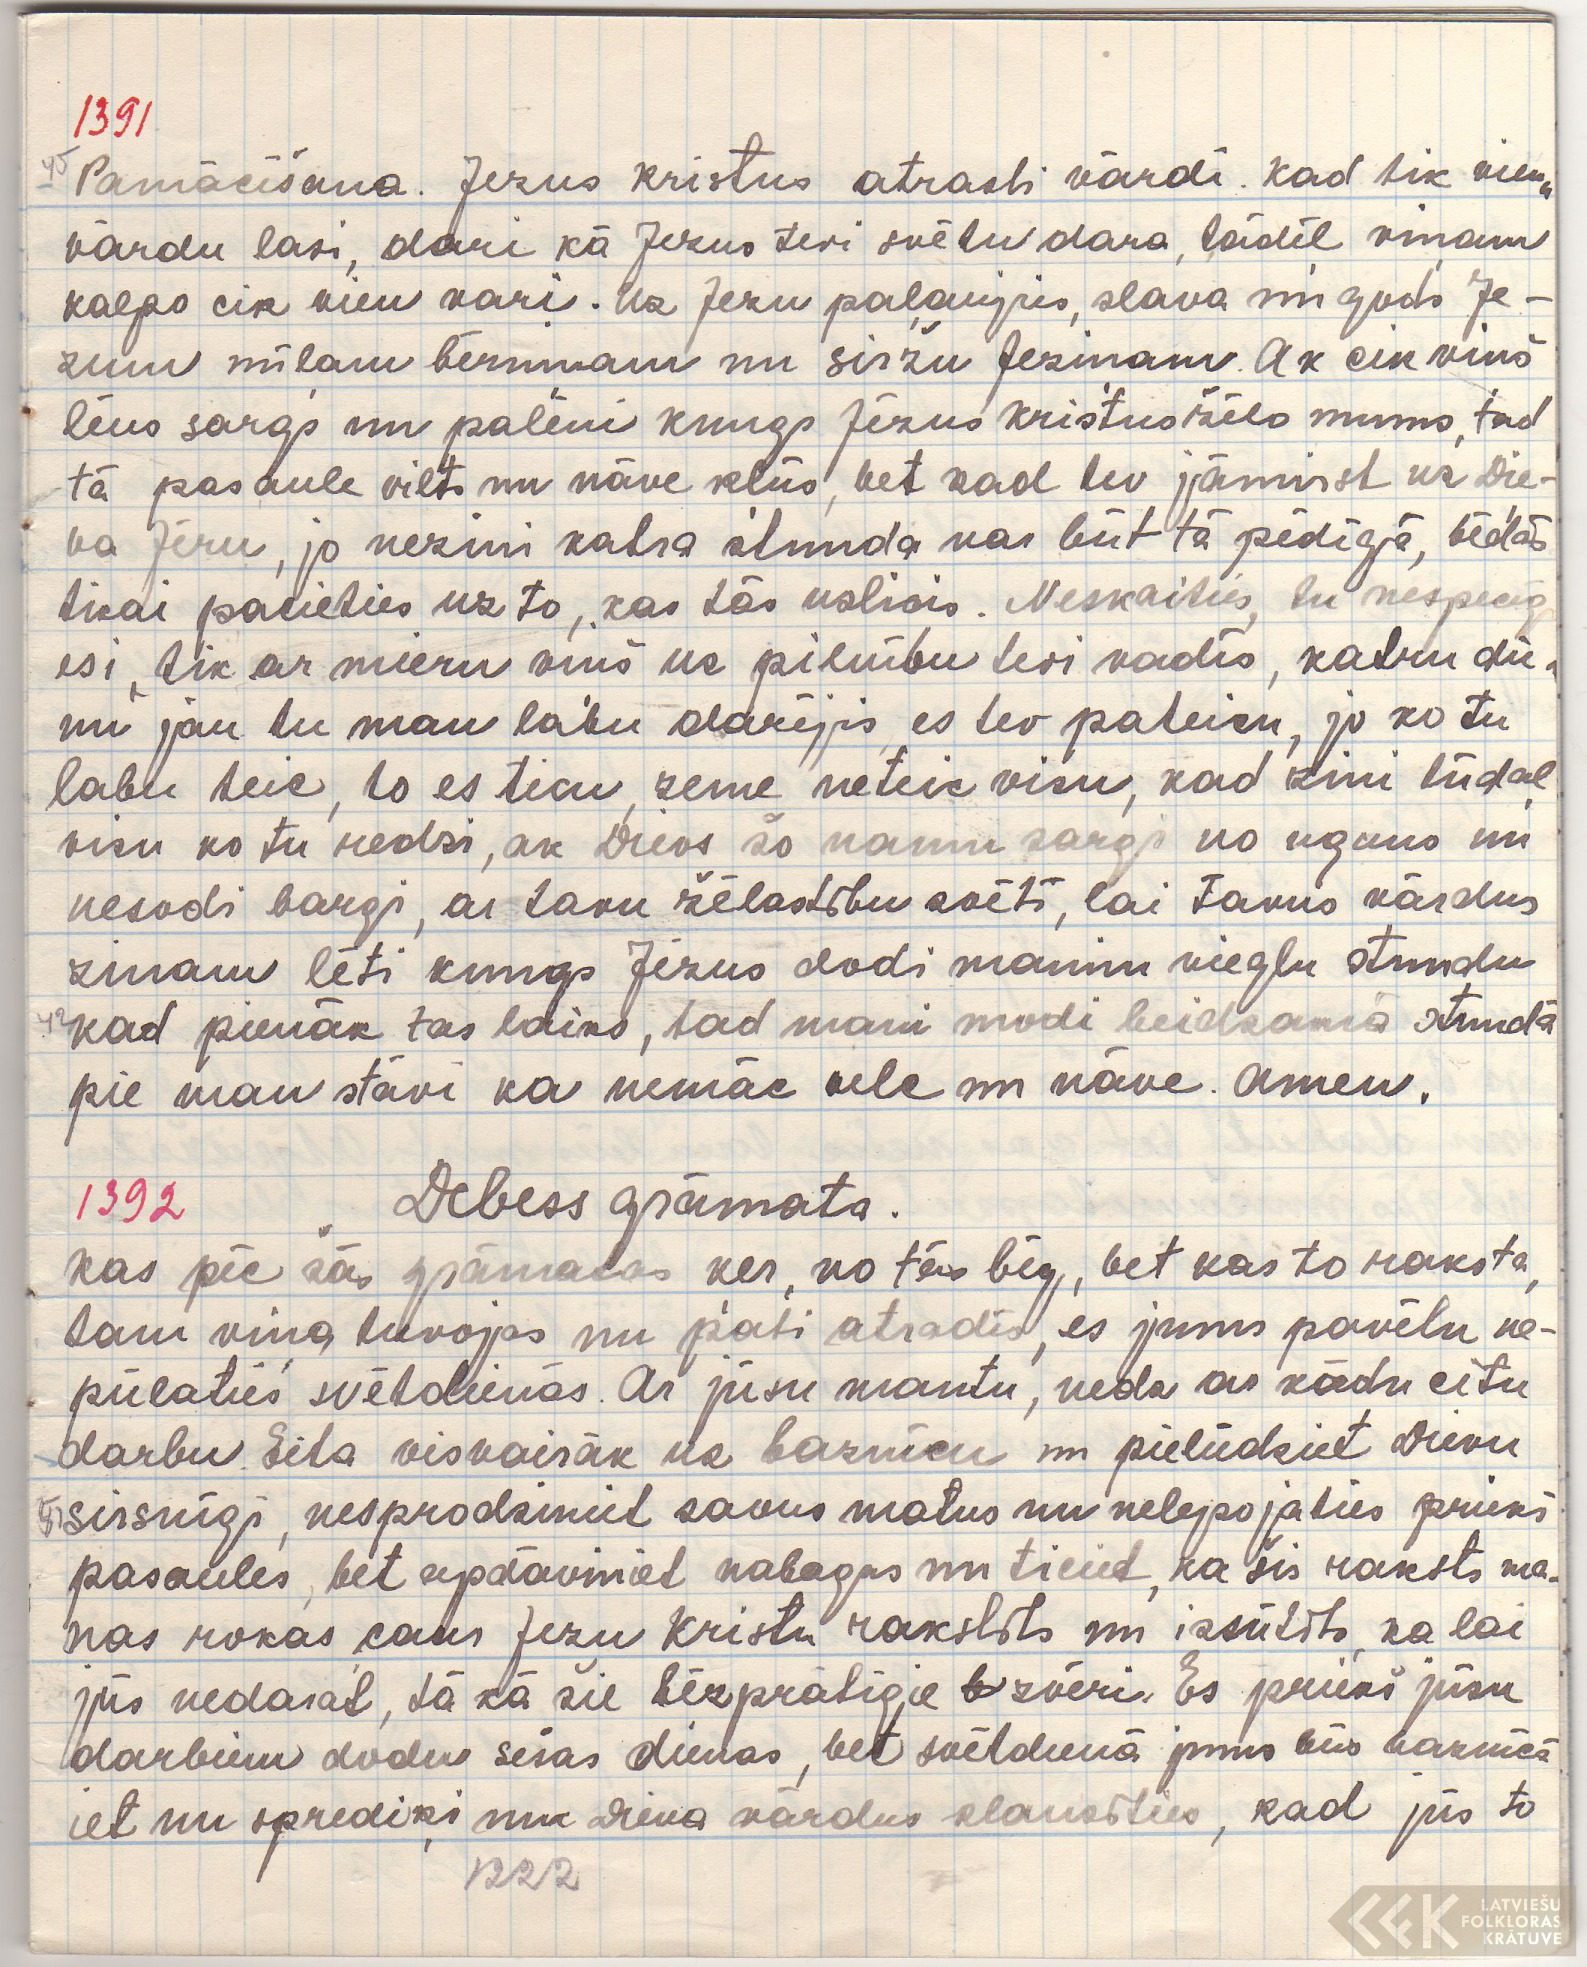 1391
Pamācīšana. Jezus Kristus atrasti vārdi. Kad tik vienu
vārdu lasi, dari kā Jezus tevi svētu dara, tādēļ viņam
kalpo cik vien vari. Uz Jezu paļaujies, slava un gods Je-
zum mīlam bērniņam un siržu Jeziņam. Ak cik viņš
lēns sargs un palēni kungs Jēzus Kristus žēlo mums, tad
tā pasaule vilts un nāve klūs, bet kad tev jāmirst uz Die-
va Jēru, jo nezini katra stunda var būt tā pēdigā, bēdās
tikai pacieties uz to, kas tās uzlicis. Neskaities, tu nespēcīg
esi, tik ar mieru viņš uz pilnību tevi vadīs, katru die-
nu jau tu man labu darējis, es tev pateicu, jo ko tu
labu teic, to es ticu, zeme neteic visu, kad zini tūdaļ
visu ko tu redzi, ak Dievs šo namu sargi no uguns un
nesodi bargi, ar tavu žēlastību svētī, lai tavus vārdus
zinam lēti kungs Jēzus dodi mannim vieglu stundu
kad pienāk tas laiks, tad mani modi beidzamā stundā
pie man stāvi ka nemāc vele un nāve. Amen.
1392 Debess grāmata.
Kas pēc šās grāmatas ķer, no tās bēg, bet kas to raksta,
tam viņa tuvojas un pati atradīs, es jums pavēlu ne-
pūlaties svētdienās. Ar jūsu mantu, neda ar kādu citu
darbu. Eita visvairāk uz baznicu un pielūdziet Dievu
sirsnīgi, nesprodziniet savus matus un nelepojaties prieks
pasaules, bet apdāviniet nabagus un ticiet, ka šis raksts ma-
nas rokas caur Jezu Kristu rakstīts un izsūtīts, ka lai
jūs nedarat, tā kā šie bēzprātīgie zvēri. Es priekš jūsu
darbiem dodu sešas dienas, bet svētdienā jums būs baznicā
iet un sprediķi un Dieva vārdus klausīties, kad jūs to
1222
LATVIEŠU
FOLKLORAS
KRĀTUVE